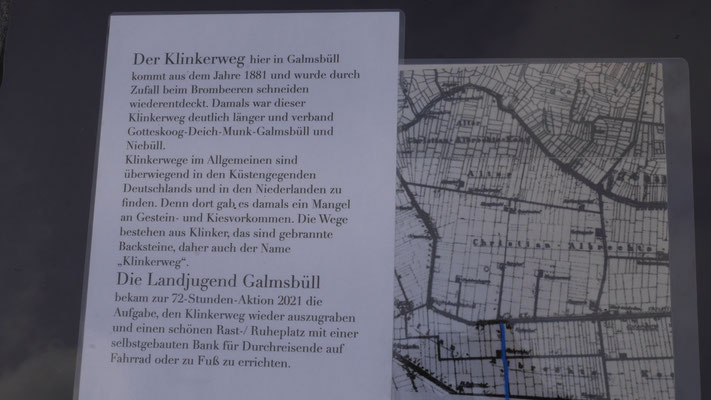 Der Klinkerweg hier in Galmsbüll
kommt aus dem Jahre 1881 und wurde durch
Zufall beim Brombeeren schneiden
wiederentdeckt. Damals war dieser
Klinkerweg deutlich länger und verband
Gotteskoog-Deich-Munk-Galmsbüll und
Niebüll.
Klinkerwege im Allgemeinen sind
überwiegend in den Küstengegenden
Deutschlands und in den Niederlanden zu
finden. Denn dort gab es damals ein Mangel
an Gestein- und Kiesvorkommen. Die Wege
bestehen aus Klinker, das sind gebrannte
Backsteine, daher auch der Name
„Klinkerweg“.
Die Landjugend Galmsbüll
bekam zur 72-Stunden-Aktion 2021 die
Aufgabe, den Klinkerweg wieder auszugraben
und einen schönen Rast-/ Ruheplatz mit einer
selbstgebauten Bank für Durchreisende auf
Fahrrad oder zu Fuß zu errichten.
Alter
Christian-Albrechts-Koog
Alter
Christian-Albrechts